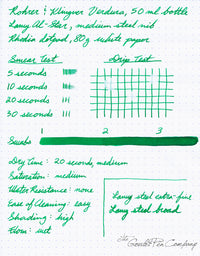 Rohrer & Klingner Verdura, 50 ml bottle
Lamy Al-Star, medium steel nib
Rhodia dotpad, 80g white paper
Smear Test
Drip Test
5 seconds
10 seconds
20 seconds
30 seconds
1 2 3
Swabs
Dry Time: 20 seconds, medium
Saturation: medium
Water Resistance: none
Ease of Cleaning: easy
Shading: high
Flow: wet
Lamy steel extra-fine
Lamy steel broad
the Goulet Pen Company